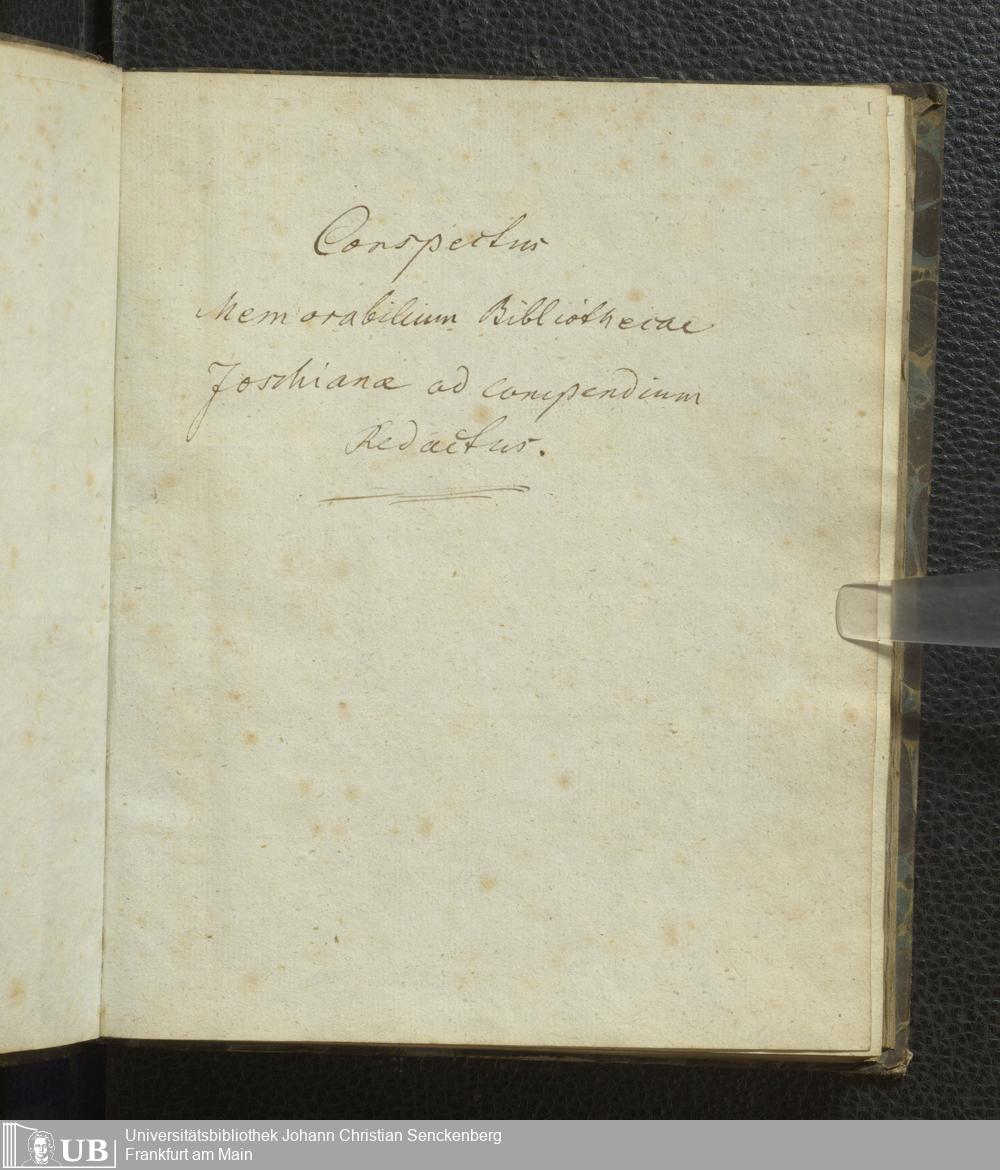 Conspectus
Memorabilium Bibliothecae
Joschianæ ad compendium
Redactus.
UB
Universitätsbibliothek Johann Christian Senckenberg
Frankfurt am Main